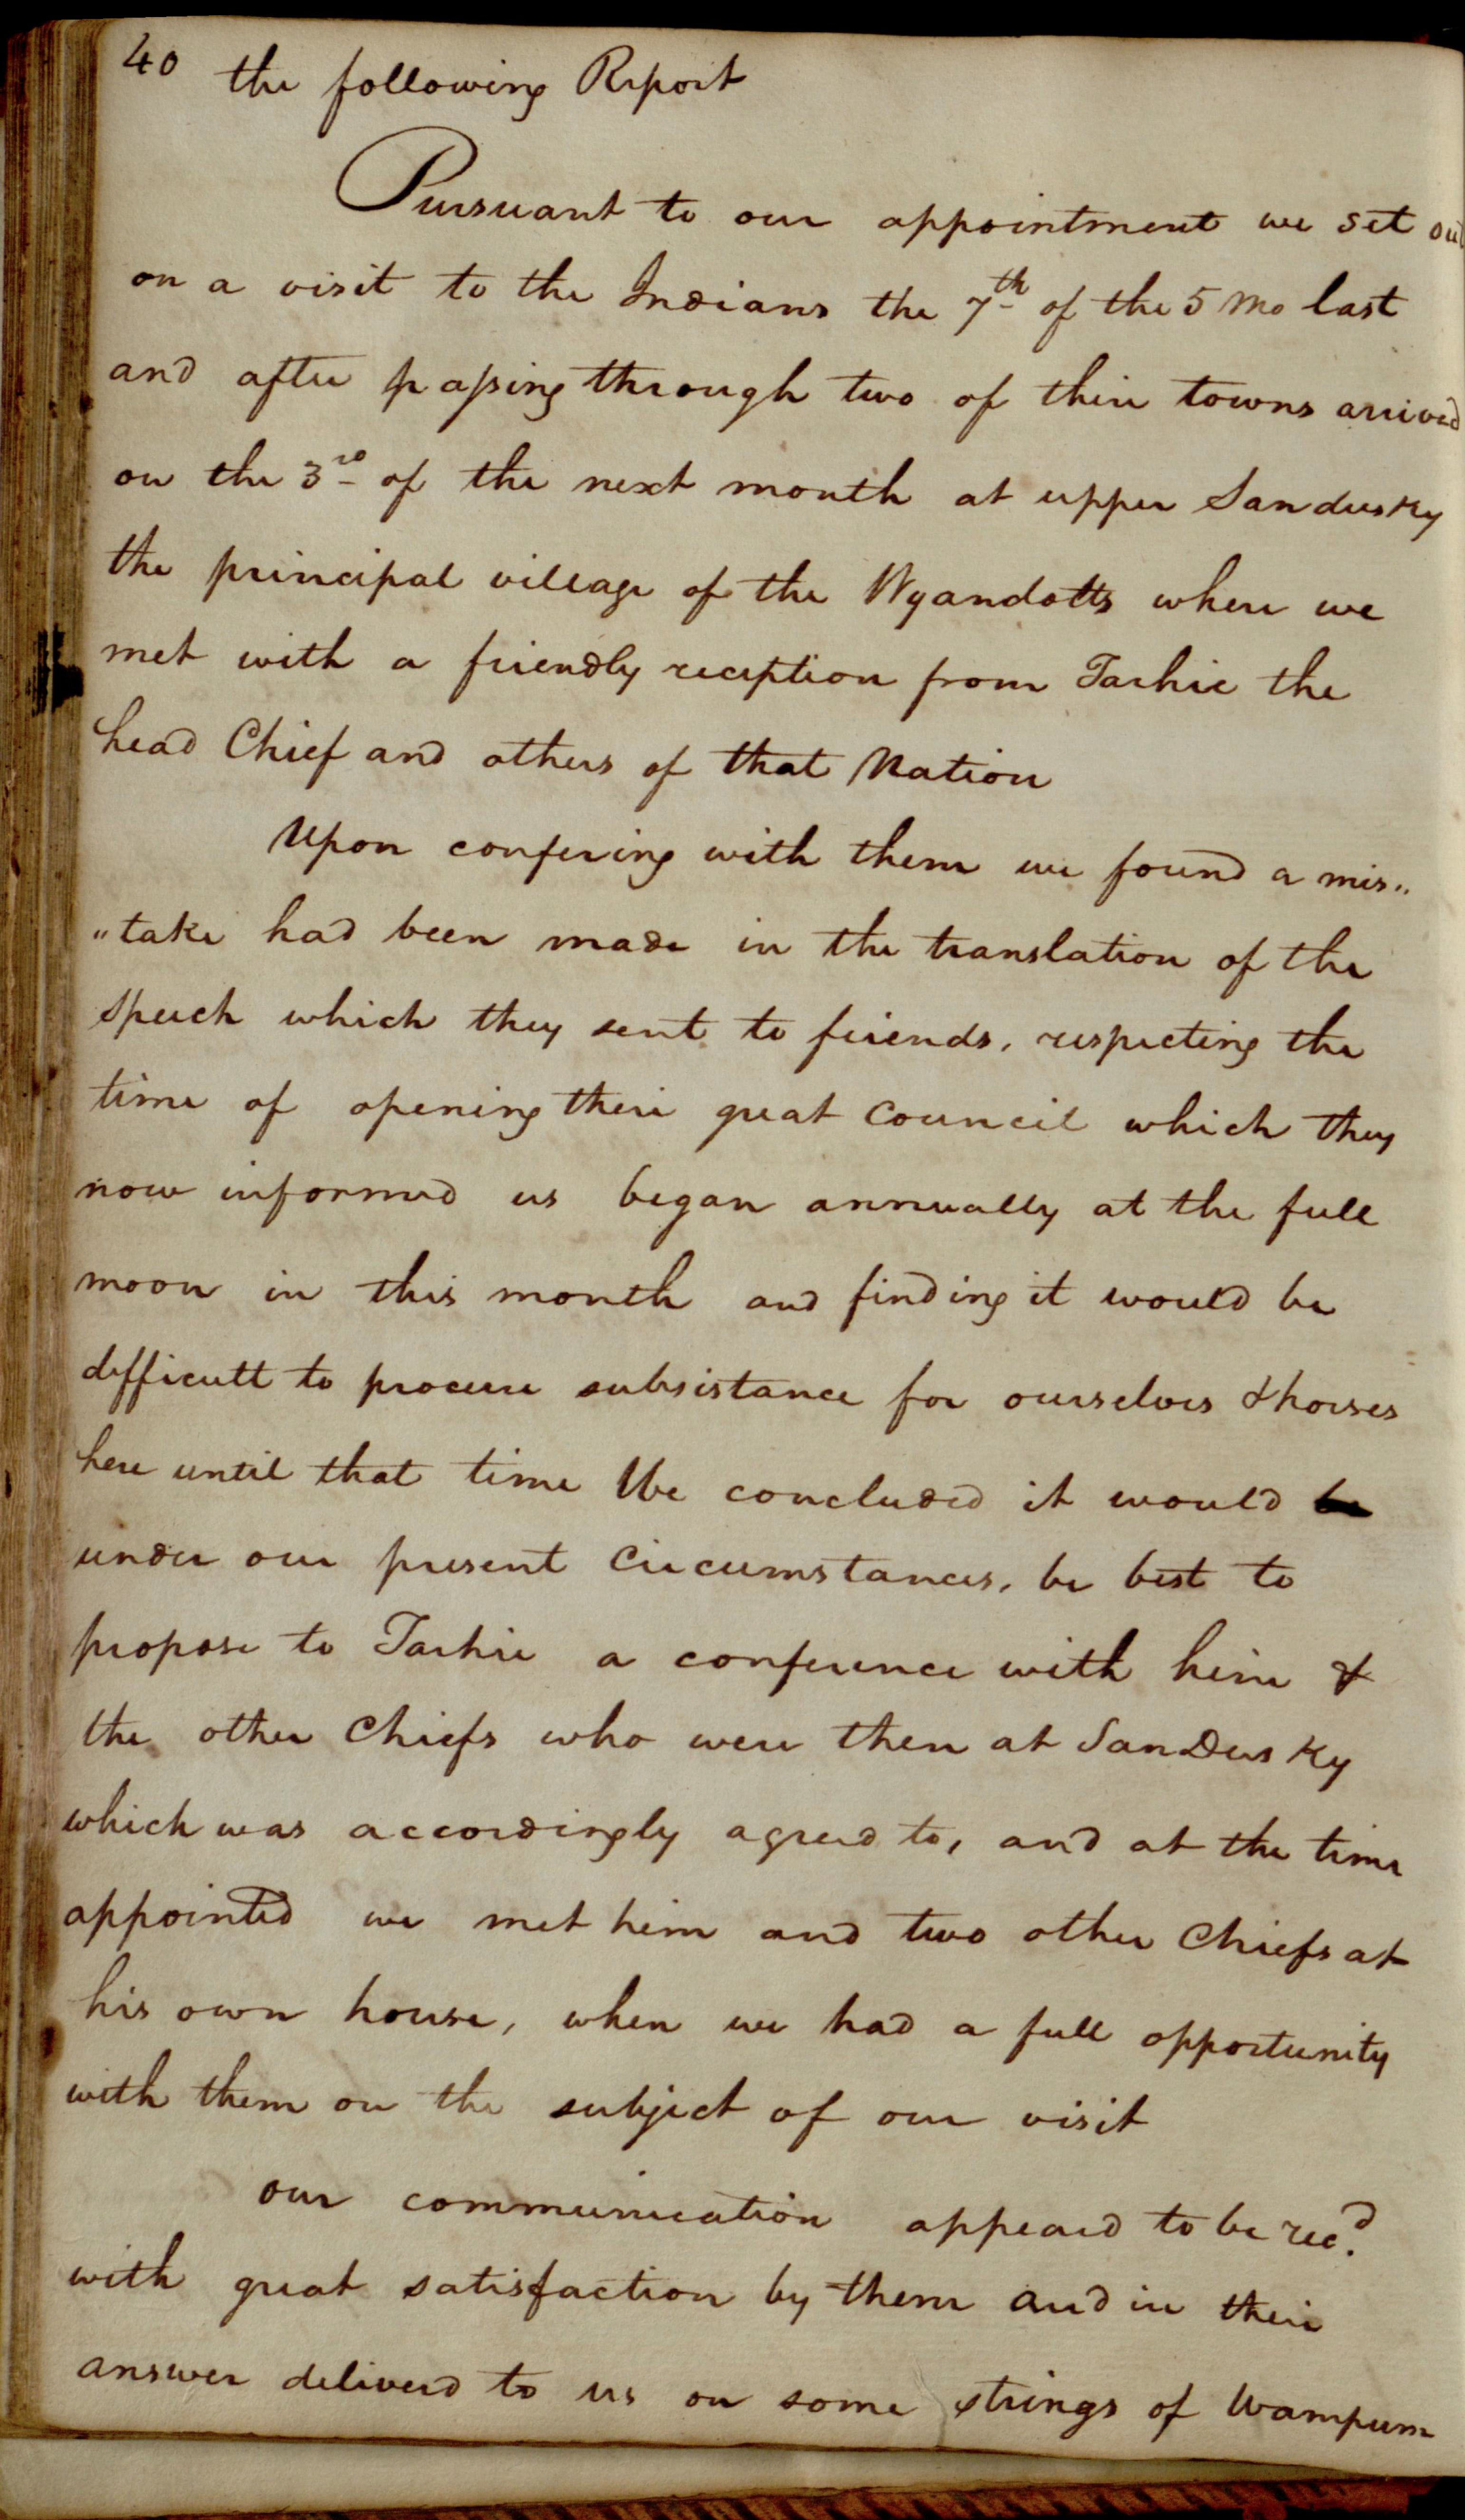 40 the following Report
Pursuant to our appointment we set out
on a visit to the Indians the 7th of the 5 mo last
and after passing through two of their towns arrived
on the 3rd of the next month at upper Sandusky
the principal village of the Wyandotts where we
met with a friendly reception from Tarhie the
head Chief and others of that Nation
Upon confering with them we found a mis"
"take had been made in the translation of the
speech which they sent to friends, respecting the
time of opening their great Council which they
now informed us began annually at the full
moon in this month and finding it would be
difficult to procure subsistance for ourselves & horses
here until that time We concluded it would be
under our present Circumstances, be best to
propose to Tarhie a conference with him &
the other Chiefs who were then at SanDusky
which was accordingly agreed to, and at the time
appointed we met him and two other Chiefs at
his own house, when we had a full opportunity
with them on the subject of our visit
our communication appeard to be recd.
with great satisfaction by them and in their
answer deliverd to us on some strings of Wampum